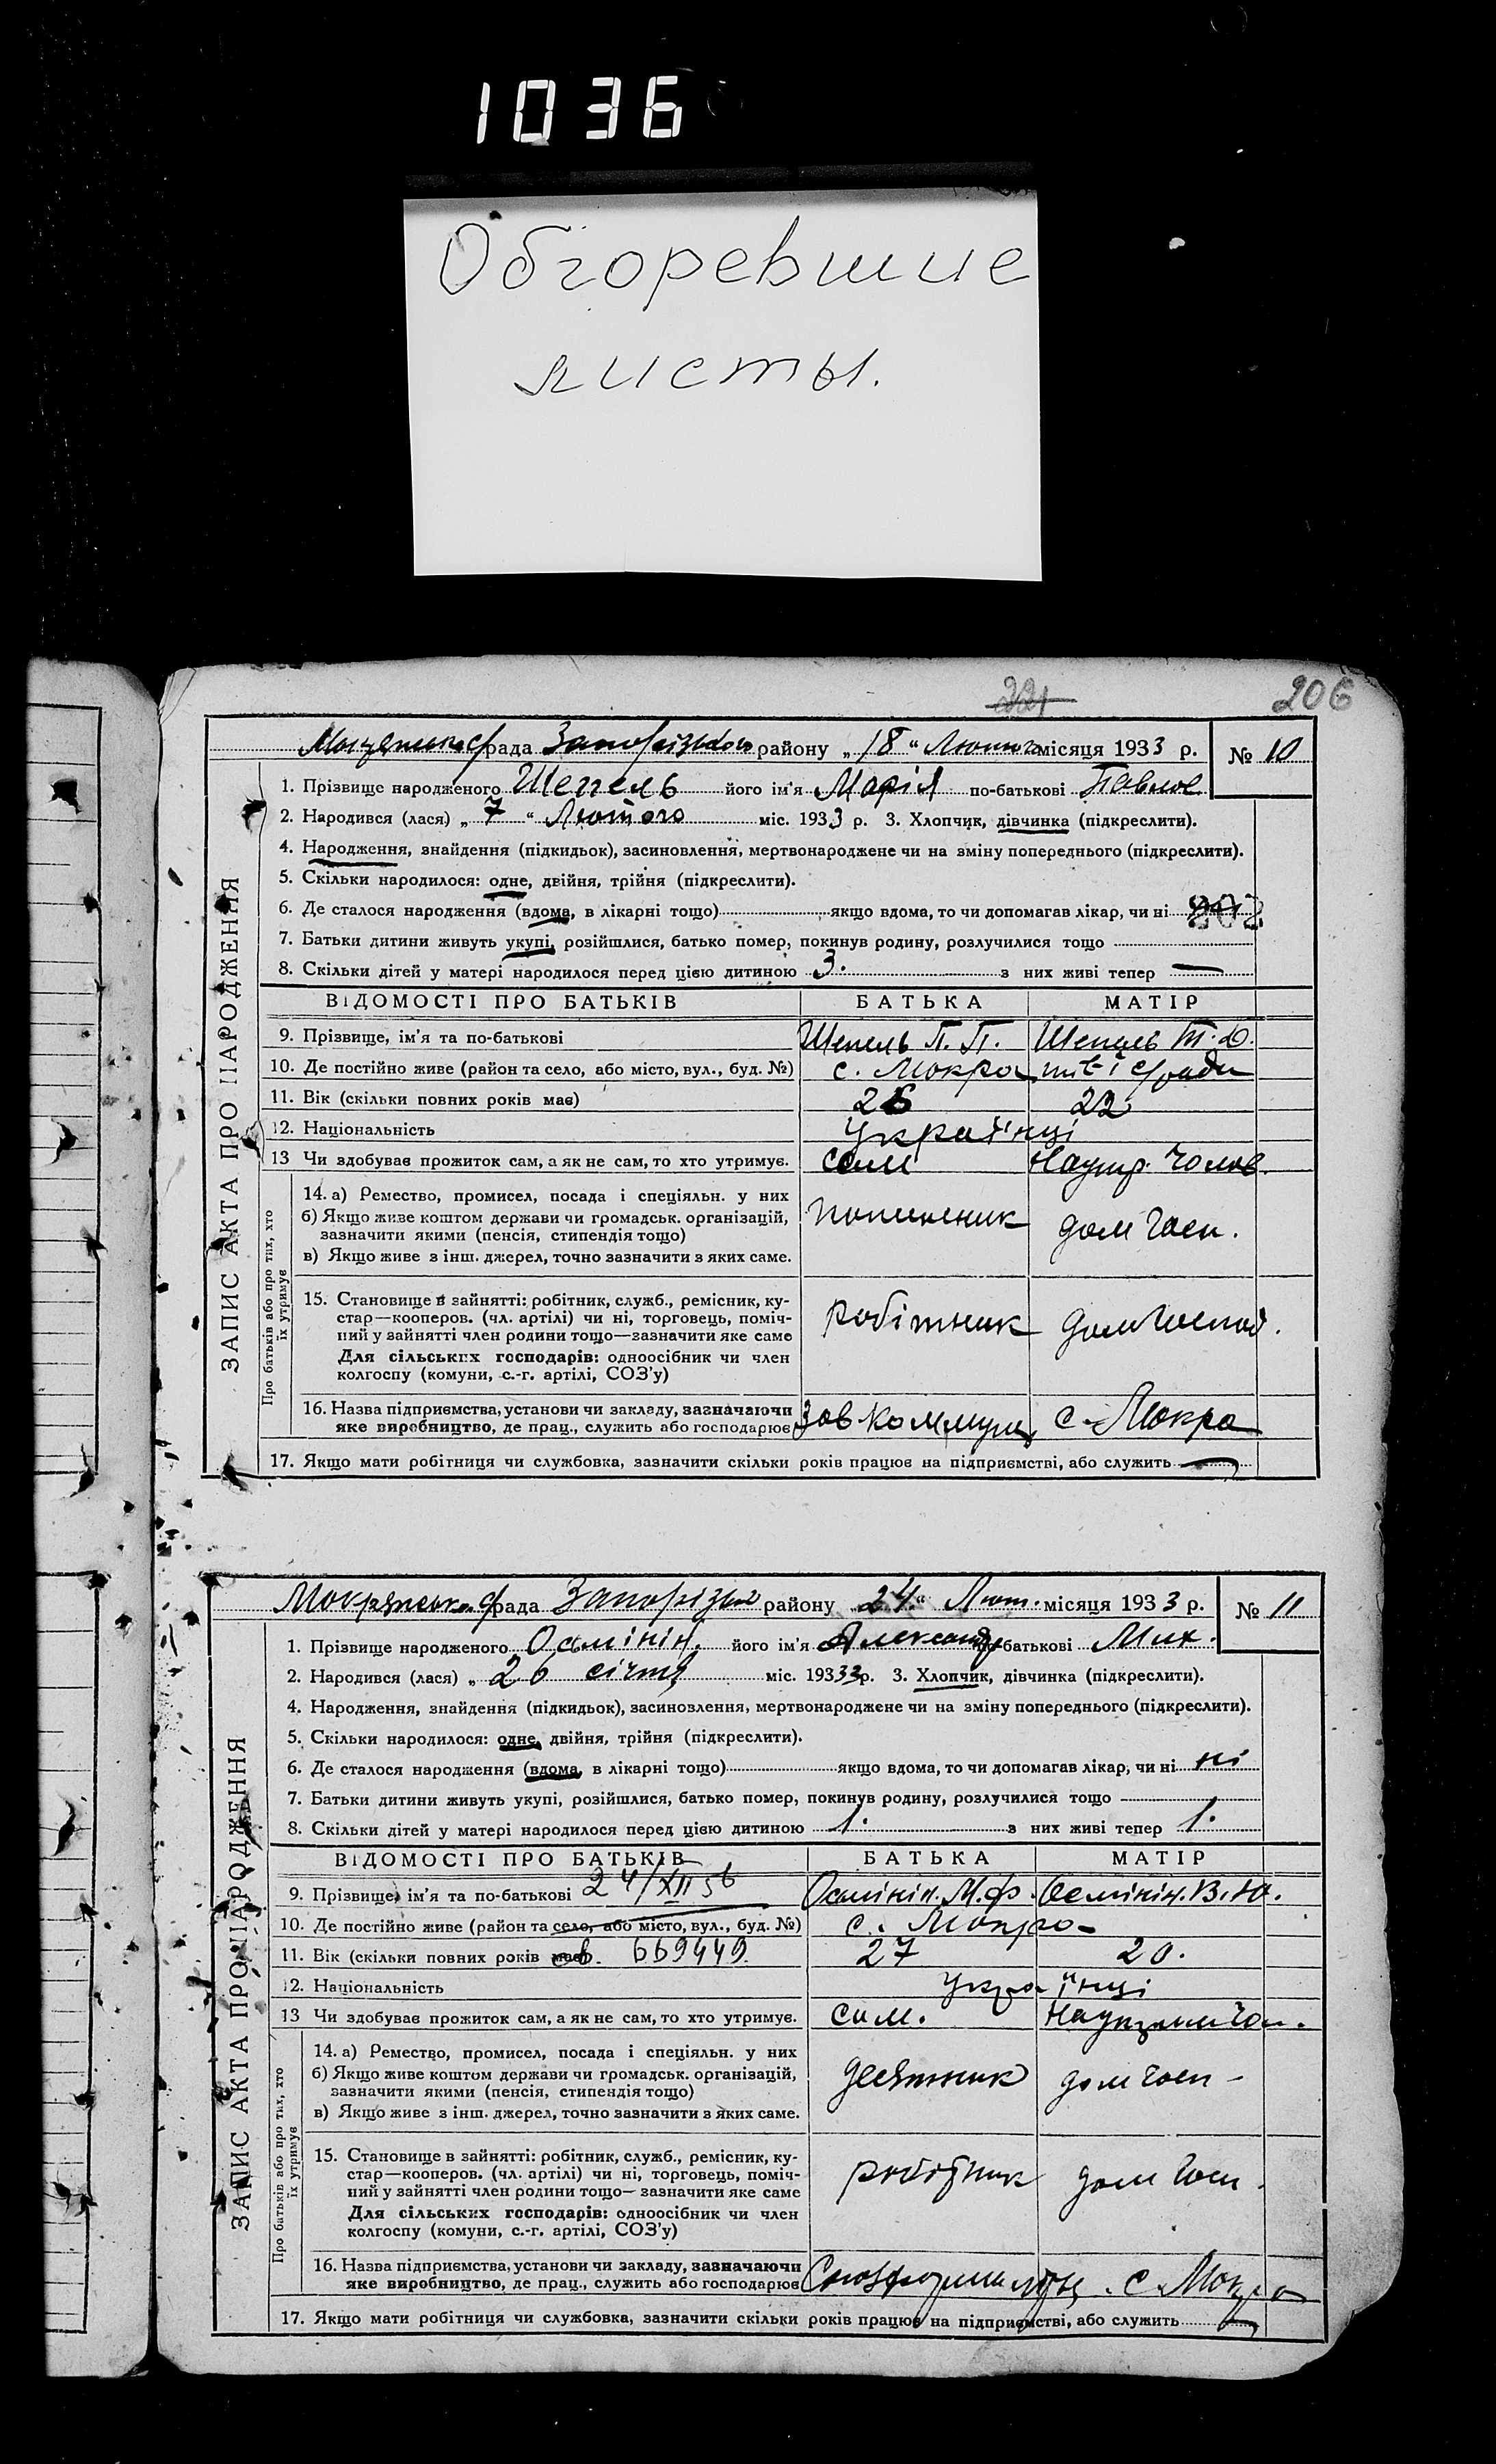 1036
Обгоревшие
листы.
221
206
рада Запорізького району „ 18 “ Лютого місяця 1933 р. № 10
1. Прізвище народженого Шепель його ім'я Марія по-батькові Павлов
2. Народився (лася) „ 7 “ Лютого міс. 1933 р. 3. Хлопчик, дівчинка (підкреслити).
4. Народження, знайдення (підкидьок), засиновлення, мертвонароджене чи на зміну попереднього (підкреслити).
5. Скільки народилося: одне, двійня, трійня (підкреслити).
6. Де сталося народження (вдома, в лікарні тощо) якщо вдома, то чи допомагав лікар, чи ні
202
7. Батьки дитини живуть укупі, розійшлися, батько помер, покинув родину, розлучилися тощо
8. Скільки дітей у матері народилося перед цією дитиною 3. з них живі тепер —
ЗАПИС АКТА ПРО НАРОДЖЕННЯ
ВІДОМОСТІ ПРО БАТЬКІВ БАТЬКА МАТІР
9. Прізвище, ім'я та по-батькові Шепель П. П. Шепель Т. Д.
10. Де постійно живе (район та село, або місто, вул., буд. №) с. Мокра
11. Вік (скільки повних років має) 26 22
12. Національність Українці
13 Чи здобував прожиток сам, а як не сам, то хто утримує. сам Наутр. чолов.
Про батьків або про тих, хто їх утримує
14. а) Ремество, промисел, посада і спеціяльн. у них
б) Якщо живе коштом держави чи громадськ. організацій,
зазначити якими (пенсія, стипендія тощо) дом госп.
в) Якщо живе з інш. джерел, точно зазначити з яких саме.
15. Становище в зайнятті: робітник, служб., ремісник, ку-
стар—кооперов. (чл. артілі) чи ні, торговець, поміч- робітник дом господ.
ний у зайнятті член родини тощо—зазначити яке саме
Для сільських господарів: одноосібник чи член
колгоспу (комуни, с.-г. артілі, СОЗ'у)
16. Назва підприємства, установи чи закладу, зазначаючи
яке виробництво, де прац., служить або господарює с. Мокра
17. Якщо мати робітниця чи службовка, зазначити скільки років працює на підприємстві, або служить —
Мокрянська рада Запорізьк району „ 24. “ Лют. місяця 1933 р. № 11
1. Прізвище народженого Осьмінін. його ім'я Александр по-батькові Мих.
2. Народився (лася) „ 26 січня міс. 1933 р. 3. Хлопчик, дівчинка (підкреслити).
4. Народження, знайдення (підкидьок), засиновлення, мертвонароджене чи на зміну попереднього (підкреслити).
5. Скільки народилося: одне, двійня, трійня (підкреслити).
6. Де сталося народження (вдома, в лікарні тощо) якщо вдома, то чи допомагав лікар, чи ні ні
7. Батьки дитини живуть укупі, розійшлися, батько помер, покинув родину, розлучилися тощо
8. Скільки дітей у матері народилося перед цією дитиною 1. з них живі тепер 1.
ЗАПИС АКТА ПРО НАРОДЖЕННЯ
ВІДОМОСТІ ПРО БАТЬКІВ БАТЬКА МАТІР
9. Прізвище, ім'я та по-батькові 24/XII 56 Осмінін. М. Ф. Осмінін. В. Ю.
10. Де постійно живе (район та село, або місто, вул., буд. №) с. Мокра
11. Вік (скільки повних років має) 669449 27 20.
12. Національність Українці
13 Чи здобував прожиток сам, а як не сам, то хто утримує. сам.
Про батьків або про тих, хто їх утримує
14. а) Ремество, промисел, посада і спеціяльн. у них
б) Якщо живе коштом держави чи громадськ. організацій, десятник дом госп
зазначити якими (пенсія, стипендія тощо)
в) Якщо живе з інш. джерел, точно зазначити з яких саме.
15. Становище в зайнятті: робітник, служб., ремісник, ку-
стар—кооперов. (чл. артілі) чи ні, торговець, поміч- робітник дом госп.
ний у зайнятті член родини тощо—зазначити яке саме
Для сільських господарів: одноосібник чи член
колгоспу (комуни, с.-г. артілі, СОЗ'у)
16. Назва підприємства, установи чи закладу, зазначаючи
яке виробництво, де прац., служить або господарює с. Мокра
17. Якщо мати робітниця чи службовка, зазначити скільки років працює на підприємстві, або служить —